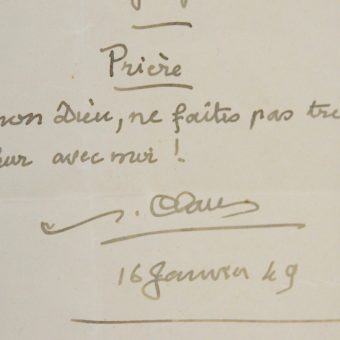 Prière
mon Dieu, ne faites pas
avec moi !
16 Janvier 49